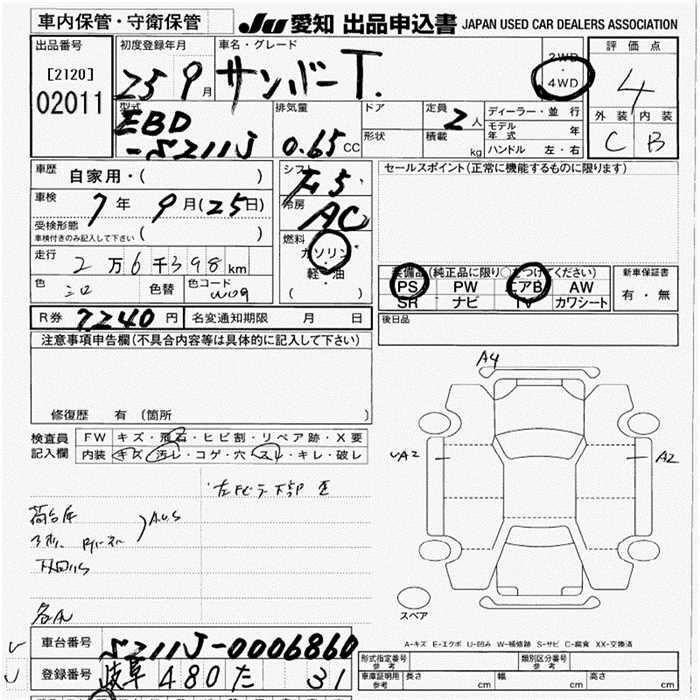 車内保管・守衛保管
JU 愛知 出品申込書 JAPAN USED CAR DEALERS ASSOCIATION
出品番号
[2120]
02011
初度登録年月
25 9月
車名・グレード
サンバーT.
2WD
・
4WD
評価点
4
外装 内装
C B
型式
EBD
-S211J
排気量
0.65 CC
ドア
形状
定員 2人
積載 kg
ディーラー・並行
モデル年式 年
ハンドル 左・右
車歴
自家用・( )
車検
7年 9月(25日)
受検形態
車検付きのみ記入して下さい ( )
走行
2万6千398km
色
シロ
色替
色コード
R券 7240円
名変通知期限 月 日
シフト
F5
冷房
AC
燃料
ガソリン
・
軽・油
( )
セールスポイント(正常に機能するものに限ります)
装備品(純正品に限り○をつけてください)
PS PW エアB AW
SR ナビ TV カワシート
新車保証書
有・無
後日品
注意事項申告欄(不具合内容等は具体的に記入して下さい)
修復歴 有(箇所 )
検査員
記入欄
FW キズ・飛石・ヒビ割・リペア跡・X要
内装 キズ・汚レ・コゲ・穴・スレ・キレ・破レ
荷台床
AUS
A4
A2
A2
スペア
A-キズ E-エクボ U-凹み W-補修跡 S-サビ C-腐食 XX-交換済
車台番号 S211J-0006860
登録番号 岐阜 480 た 31
形式指定番号
参考
類別区分番号
参考
車庫証明用
参考
長さ cm 幅 cm 高さ cm